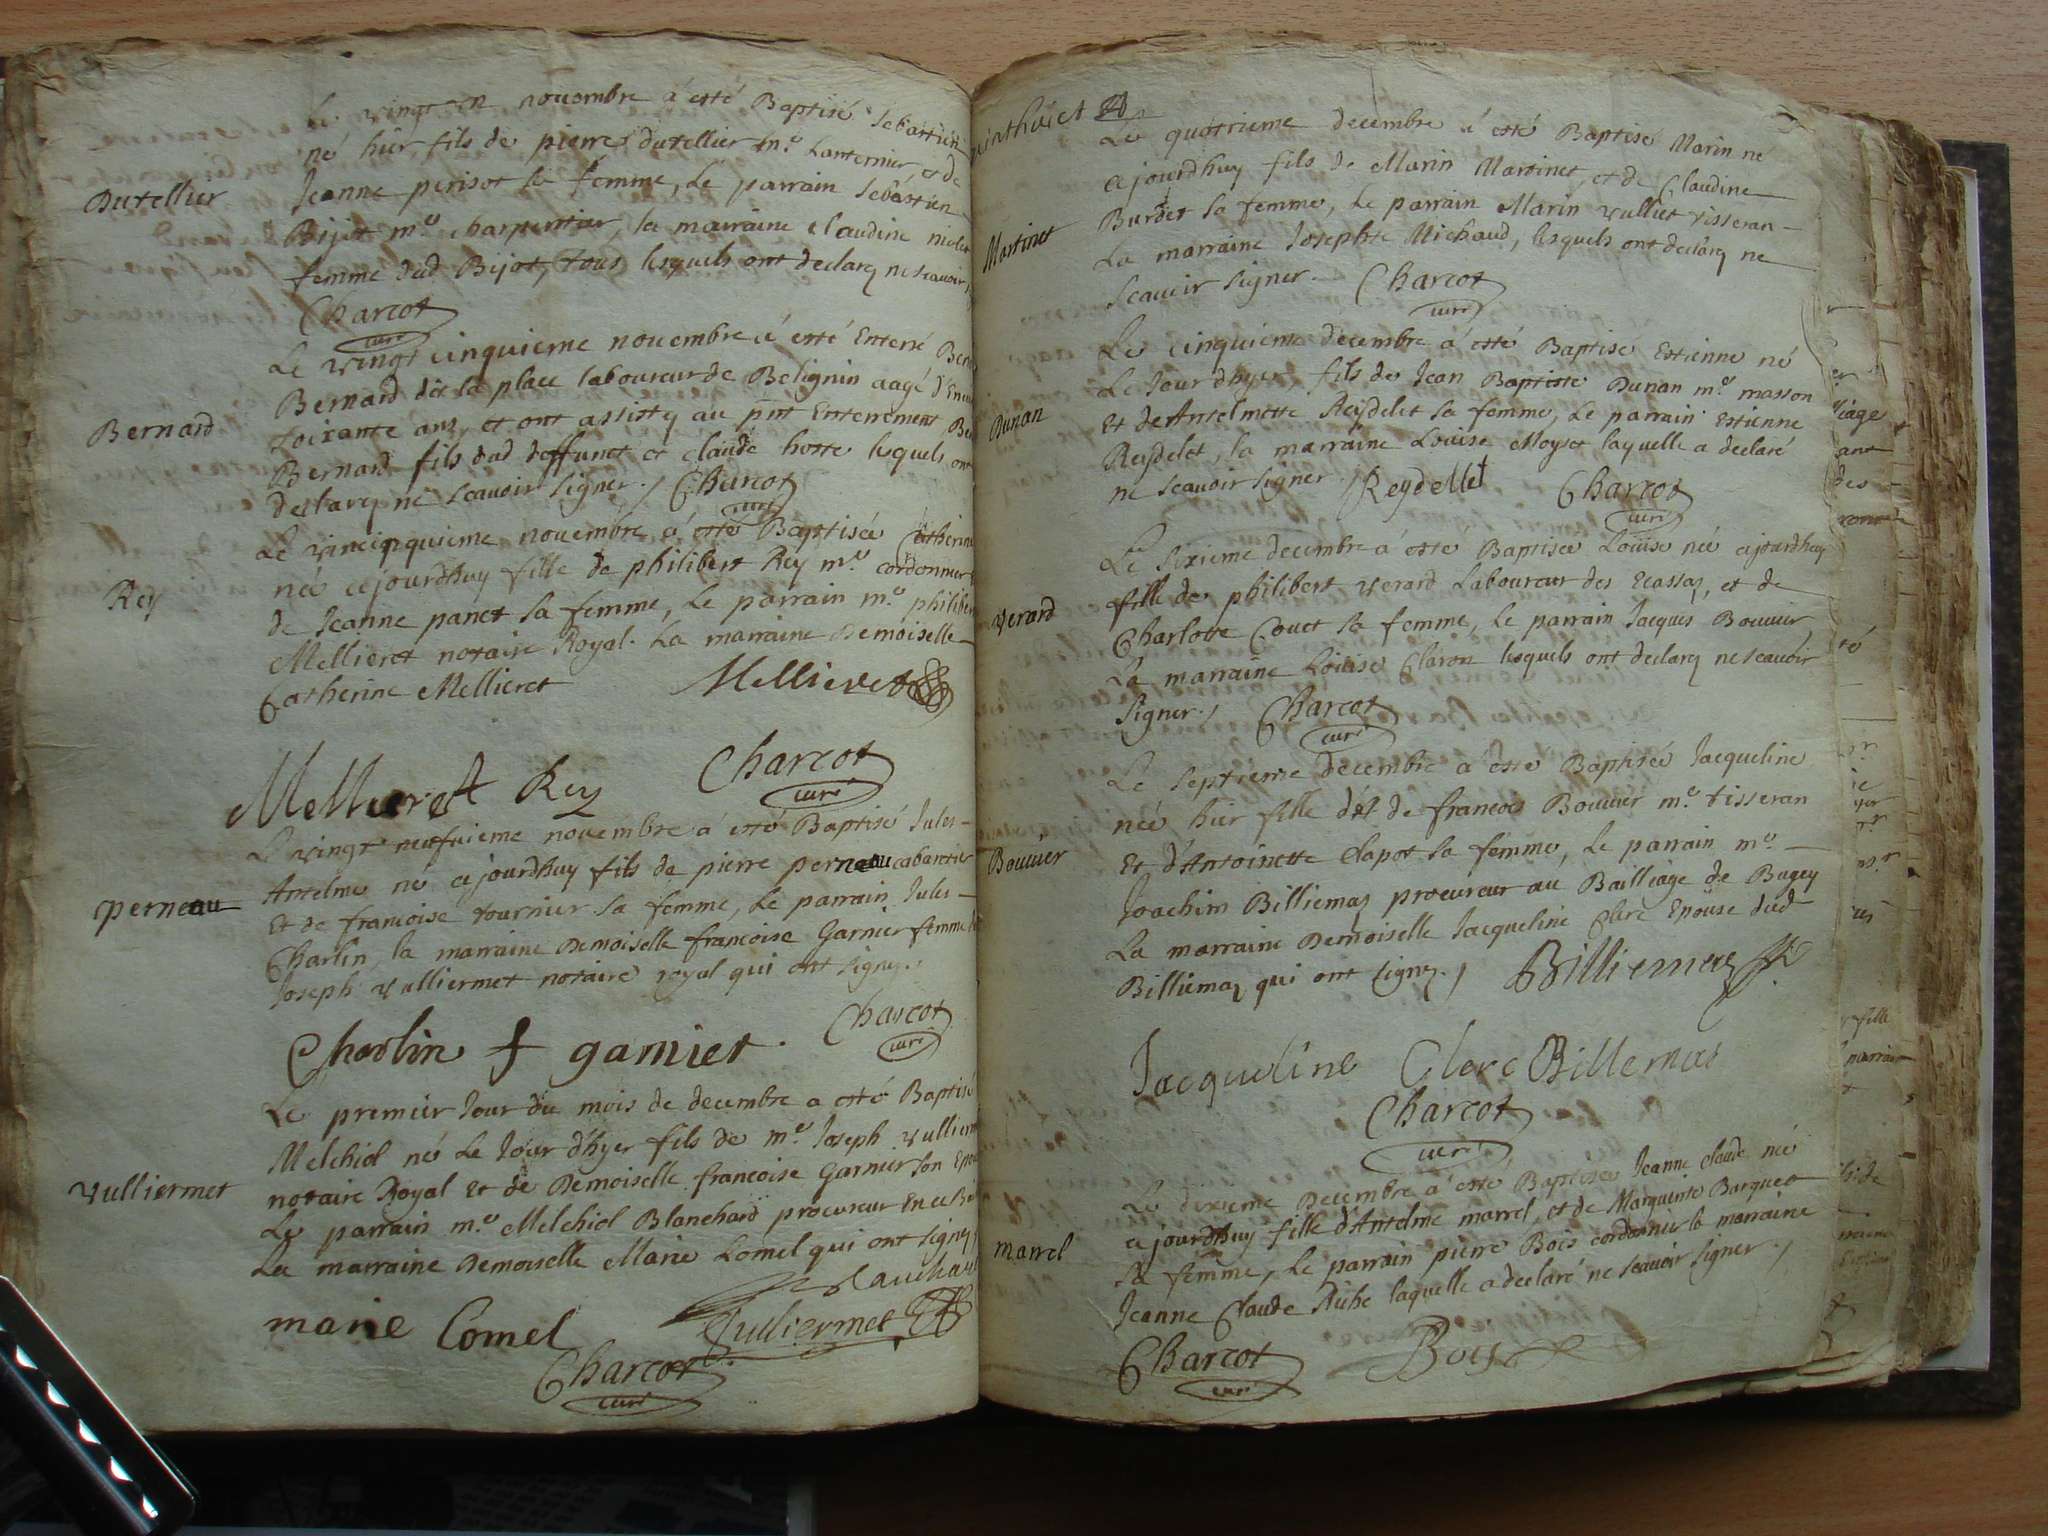 Le vingt un novembre à esté Baptisé Sebastien
né hier fils de pierre dutellier m.e Lanternier, et de
Dutellier
Jeanne perisot sa femme, Le parrain Sebastien
Bijot m.e charpentier, la marraine claudine nicolet
femme dud Bijot, tous lesquels ont declarq ne scavoir
Charcot
curé
Le vingt cinquieme novembre à esté Enterré
Bernard dit la place laboureur de Belignin aagé d'Env
Bernard
soixante ans, et ont assistq au pnt Enterrement
Bernard fils dud deffunct et claude hoste lesquels ont
declarq ne scavoir signer./ Charcot
curé
Le vincinquieme novembre à esté Baptisée Catherine
née cejourdhuy fille de philibert Rey m.e cordonnier
Rey
de Jeanne panet sa femme, Le parrain m.e philibert
Mellieret notaire Royal. La marraine Demoiselle
Catherine Mellieret
Mellieret
Mellieret Rey Charcot
curé
Le vingt neufvieme novembre à esté Baptisé Jules-
Antelme né cejourdhuy fils de pierre perneau cabaretier
perneau
Et de francoise tournier sa femme, Le parrain Jules-
Charlin, la marraine Demoiselle francoise Garnier femme
Joseph vulliermet notaire royal qui ont signq./
Charlin f garnier. Charcot
curé
Le premier Jour du mois de decembre a esté Baptisé
Melchiol né Le Jour d'hyer fils de m.e Joseph vulliermet
vulliermet
notaire Royal Et de Demoiselle francoise Garnier son Epouse
Le parrain m.e Melchiol Blanchard procureur En ce
La marraine Demoiselle Marie Comel qui ont signq
Blanchard
marie Comel Vulliermet
Charcot
curé
Le quatrieme decembre à esté Baptisé Marin né
cejourdhuy fils de Marin Martinet, et de Claudine
Martinet
Burdet sa femme, Le parrain Marin vulliet tisseran-
La marraine Josephte Michaud, lesquels ont declarq ne
scavoir signer. Charcot
curé
Le cinquieme decembre à esté Baptisé Estienne né
Le Jour d'hyer, fils de Jean Baptiste Dunan m.e masson
Dunan
Et de Antelmette Reydelet sa femme, Le parrain Estienne
Reydelet, la marraine Louise Moyset laquelle a declaré
ne scavoir signer. Reydellet Charcot
curé
Le sixieme decembre à esté Baptisée Louise née cejourdhuy
fille de philibert verard Laboureur des Ecassaz, et de
verard
Charlotte Couet sa femme, Le parrain Jacques Bouvier
La marraine Louise Claron lesquels ont declarq ne scavoir
signer./ Charcot
curé
Le septieme decembre à esté Baptisée Jacqueline
née hier fille de francois Bouvier m.e tisseran
Bouvier
Et d'Antoinette Clapot sa femme, Le parrain m.e
Joachim Billiemaz procureur au Bailliage de Bugey
La marraine Demoiselle Jacqueline Clerc Epouse dud
Billiemaz qui ont signq./ Billiemaz
Jacqueline Clerc Billemas
Charcot
curé
Le dixieme Decembre à esté Baptisée Jeanne claude née
cejourdhuy fille d'Antelme marrel, et de Marguerite Barquet
marrel
sa femme, Le parrain pierre Bois cordonnier la marraine
Jeanne Claude Ruhe laquelle a declaré ne scavoir signer./
Charcot Bois
curé